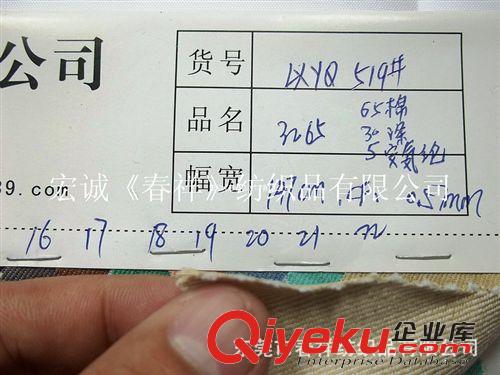 公司
货号 LXYQ 519#
65棉
品名 3265 30涤
5安氨纶
宏诚《春祥》纺织品有限公司
幅宽 147cm 0.5mm
39.com
16 17 18 19 20 21 22
Qiyeku.com 企业库
Enterprise Database